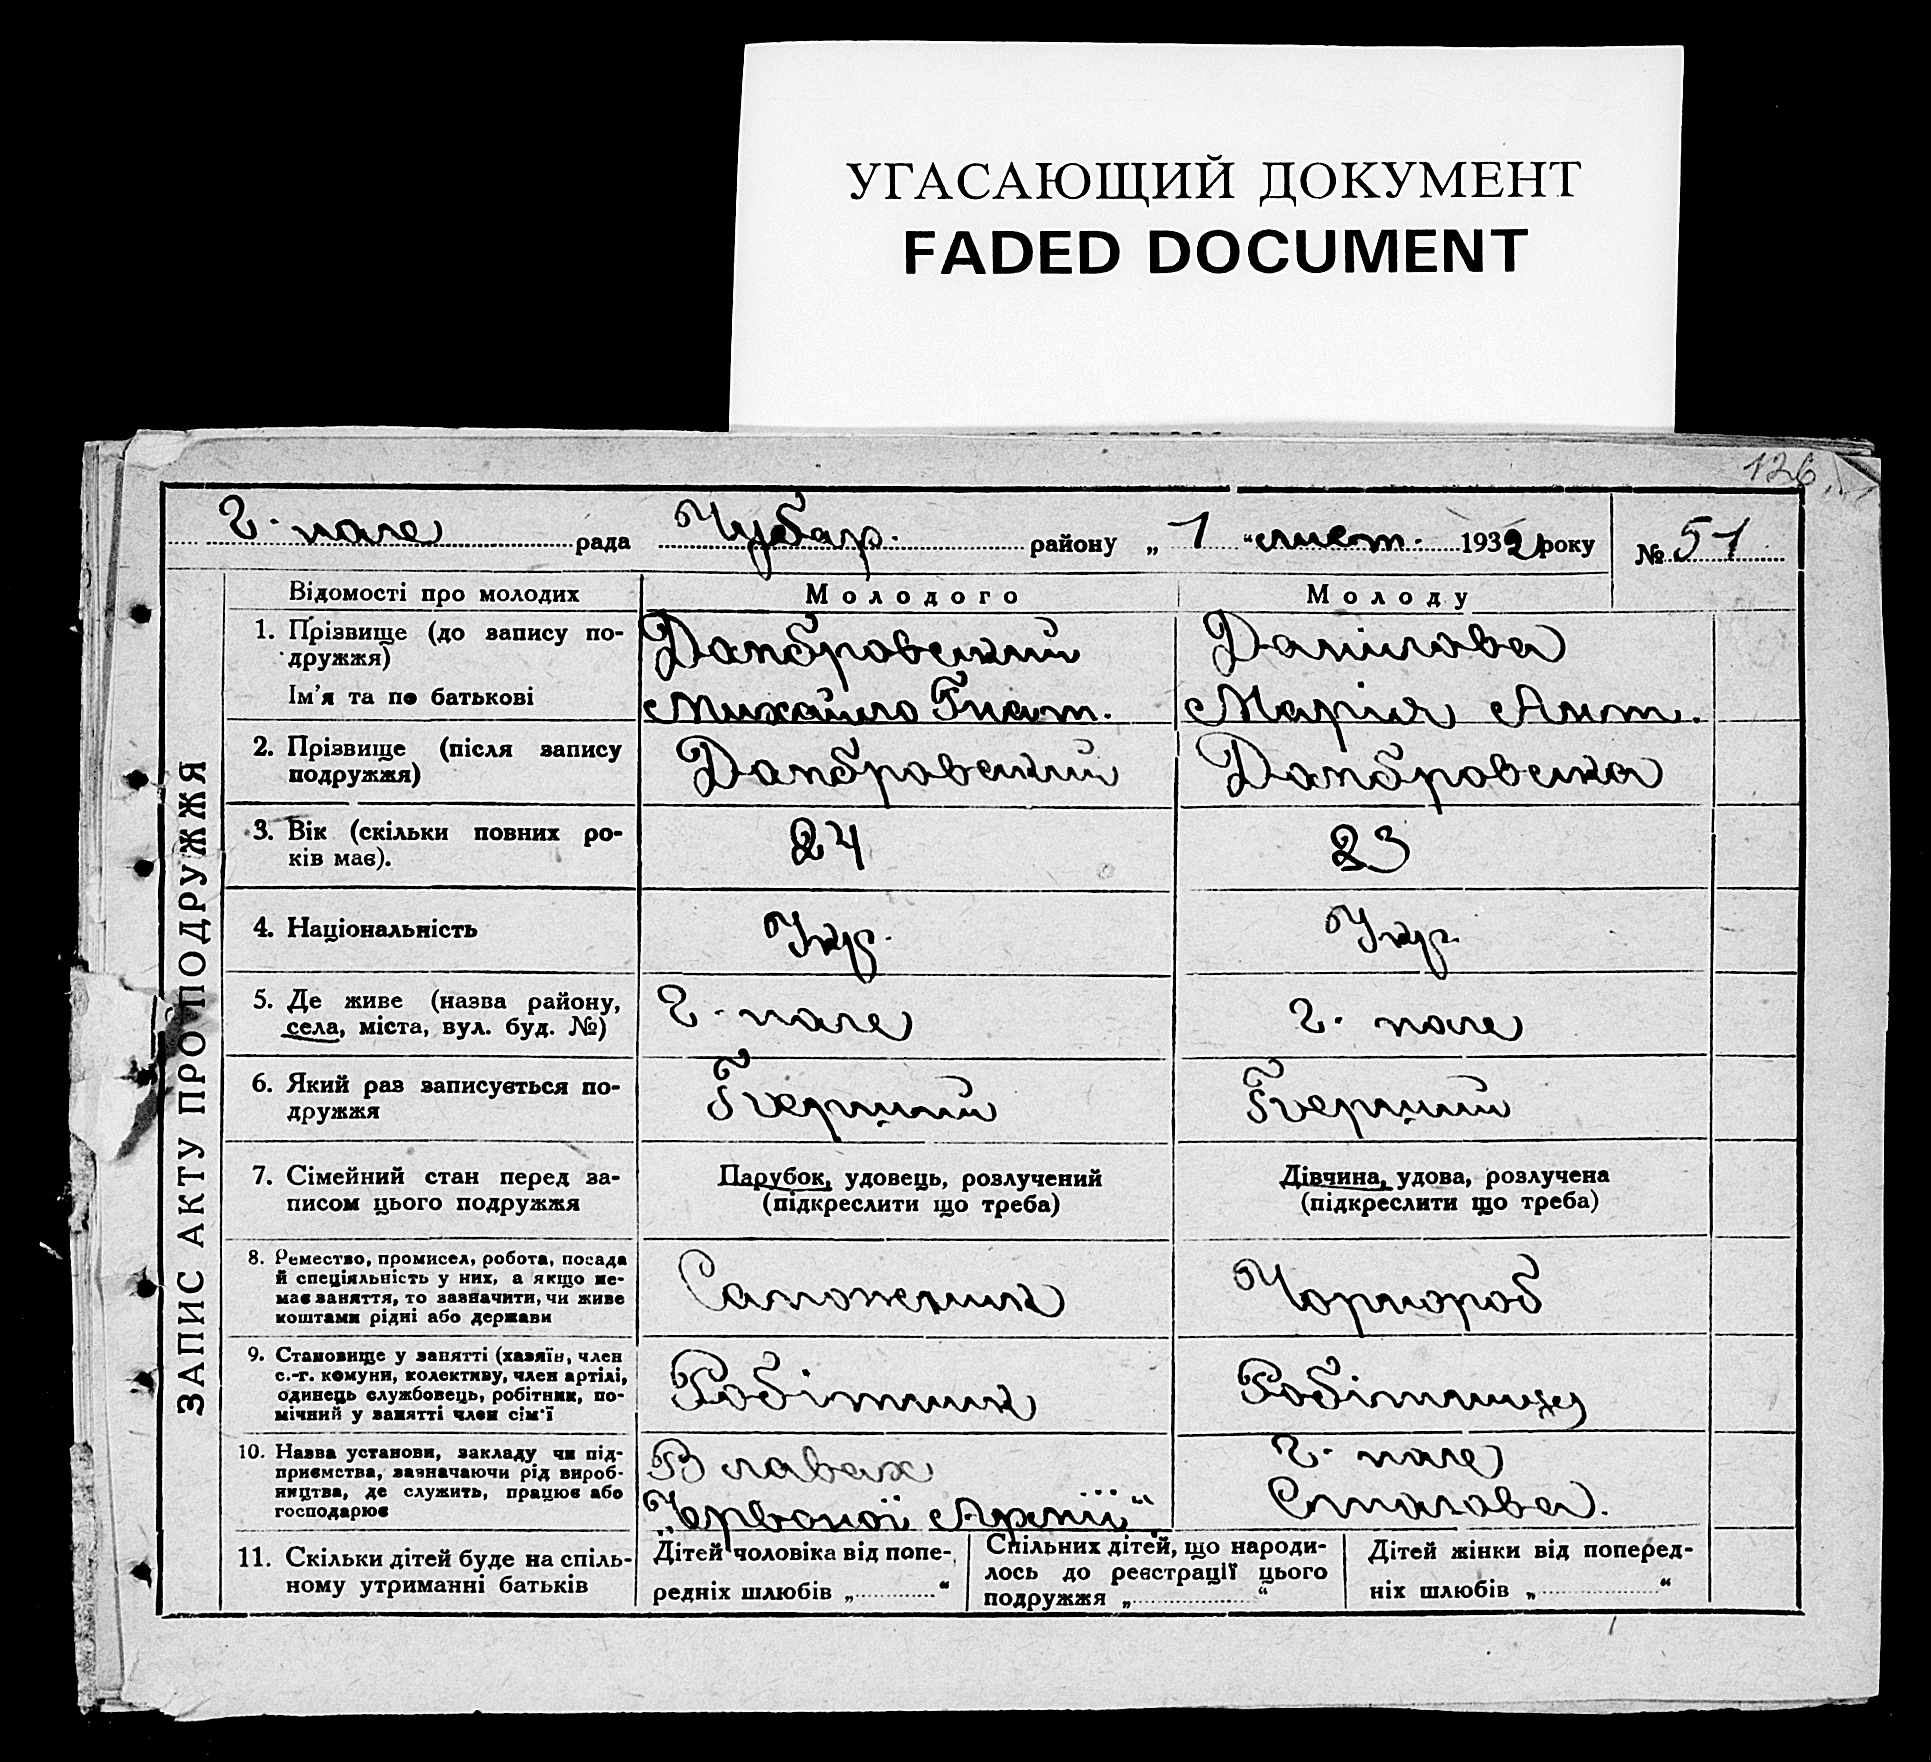 УГАСАЮЩИЙ ДОКУМЕНТ
FADED DOCUMENT
126
Г. поле рада Чубар. району „ 1 “ лист. 1932 року № 51
ЗАПИС АКТУ ПРО ПОДРУЖЖЯ
Відомості про молодих Молодого Молоду
1. Прізвище (до запису по-
дружжя)
Домбровський Данілова
Ім'я та по батькові Михайло Гнат. Марія Ант.
2. Прізвище (після запису
подружжя)
Домбровський Домбровська
3. Вік (скільки повних ро-
ків має).
24 23
4. Національність Укр. Укр.
5. Де живе (назва району,
села, міста, вул. буд. №)
Г. поле Г. поле
6. Який раз записується по-
дружжя
Іперший Іперший
7. Сімейний стан перед за-
писом цього подружжя
Парубок, удовець, розлучений
(підкреслити що треба)
Дівчина, удова, розлучена
(підкреслити що треба)
8. Ремество, промисел, робота, посада
й спеціяльність у них, а якщо не-
має заняття, то зазначити, чи живе
коштами рідні або держави
Сапожник Чорнороб
9. Становище у занятті (хазяїн, член
с.-г. комуни, колективу, член артілі,
одинець службовець, робітник, по-
мічний у занятті член сім'ї
Робітник Робітниця
10. Назва установи, закладу чи під-
приємства, зазначаючи рід вироб-
ництва, де служить, працює або
господарює
В лавах
„Червоної Армії“
Г. поле
Столова.
11. Скільки дітей буде на спіль-
ному утриманні батьків
Дітей чоловіка від попе-
редніх шлюбів „ “
Спільних дітей, що народи-
лось до реєстрації цього
подружжя „ “
Дітей жінки від поперед-
ніх шлюбів „ “